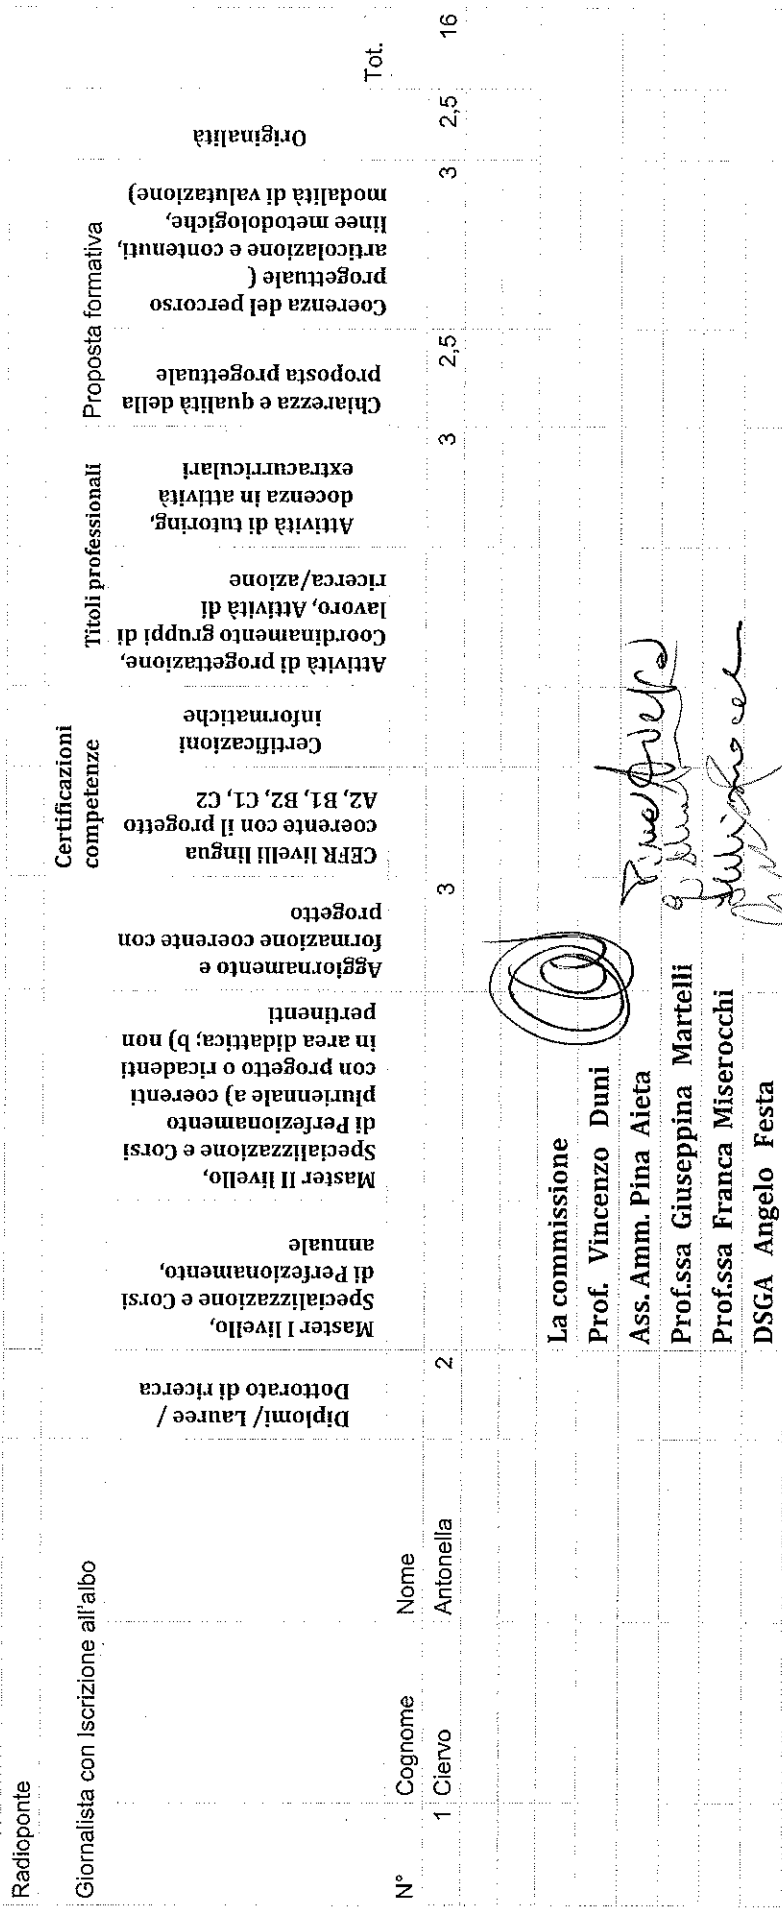 Radioponte
Giornalista con Iscrizione all'albo
Certificazioni
competenze
Titoli professionali
Proposta formativa
N°
Cognome
Nome
Diplomi/ Lauree /
Dottorato di ricerca
Master I livello,
Specializzazione e Corsi
di Perfezionamento,
annuale
Master II livello,
Specializzazione e Corsi
di Perfezionamento
pluriennale a) coerenti
con progetto o ricadenti
in area didattica; b) non
pertinenti
Aggiornamento e
formazione coerente con
progetto
CEFR livelli lingua
coerente con il progetto
A2, B1, B2, C1, C2
Certificazioni
informatiche
Attività di progettazione,
Coordinamento gruppi di
lavoro, Attività di
ricerca/azione
Attività di tutoring,
docenza in attività
extracurriculari
Chiarezza e qualità della
proposta progettuale
Coerenza del percorso
progettuale (
articolazione e contenuti,
linee metodologiche,
modalità di valutazione)
Originalità
Tot.
1 Ciervo Antonella 2 3 3 2,5 3 2,5 16
La commissione
Prof. Vincenzo Duni
Ass. Amm. Pina Aieta
Prof.ssa Giuseppina Martelli
Prof.ssa Franca Miserocchi
DSGA Angelo Festa